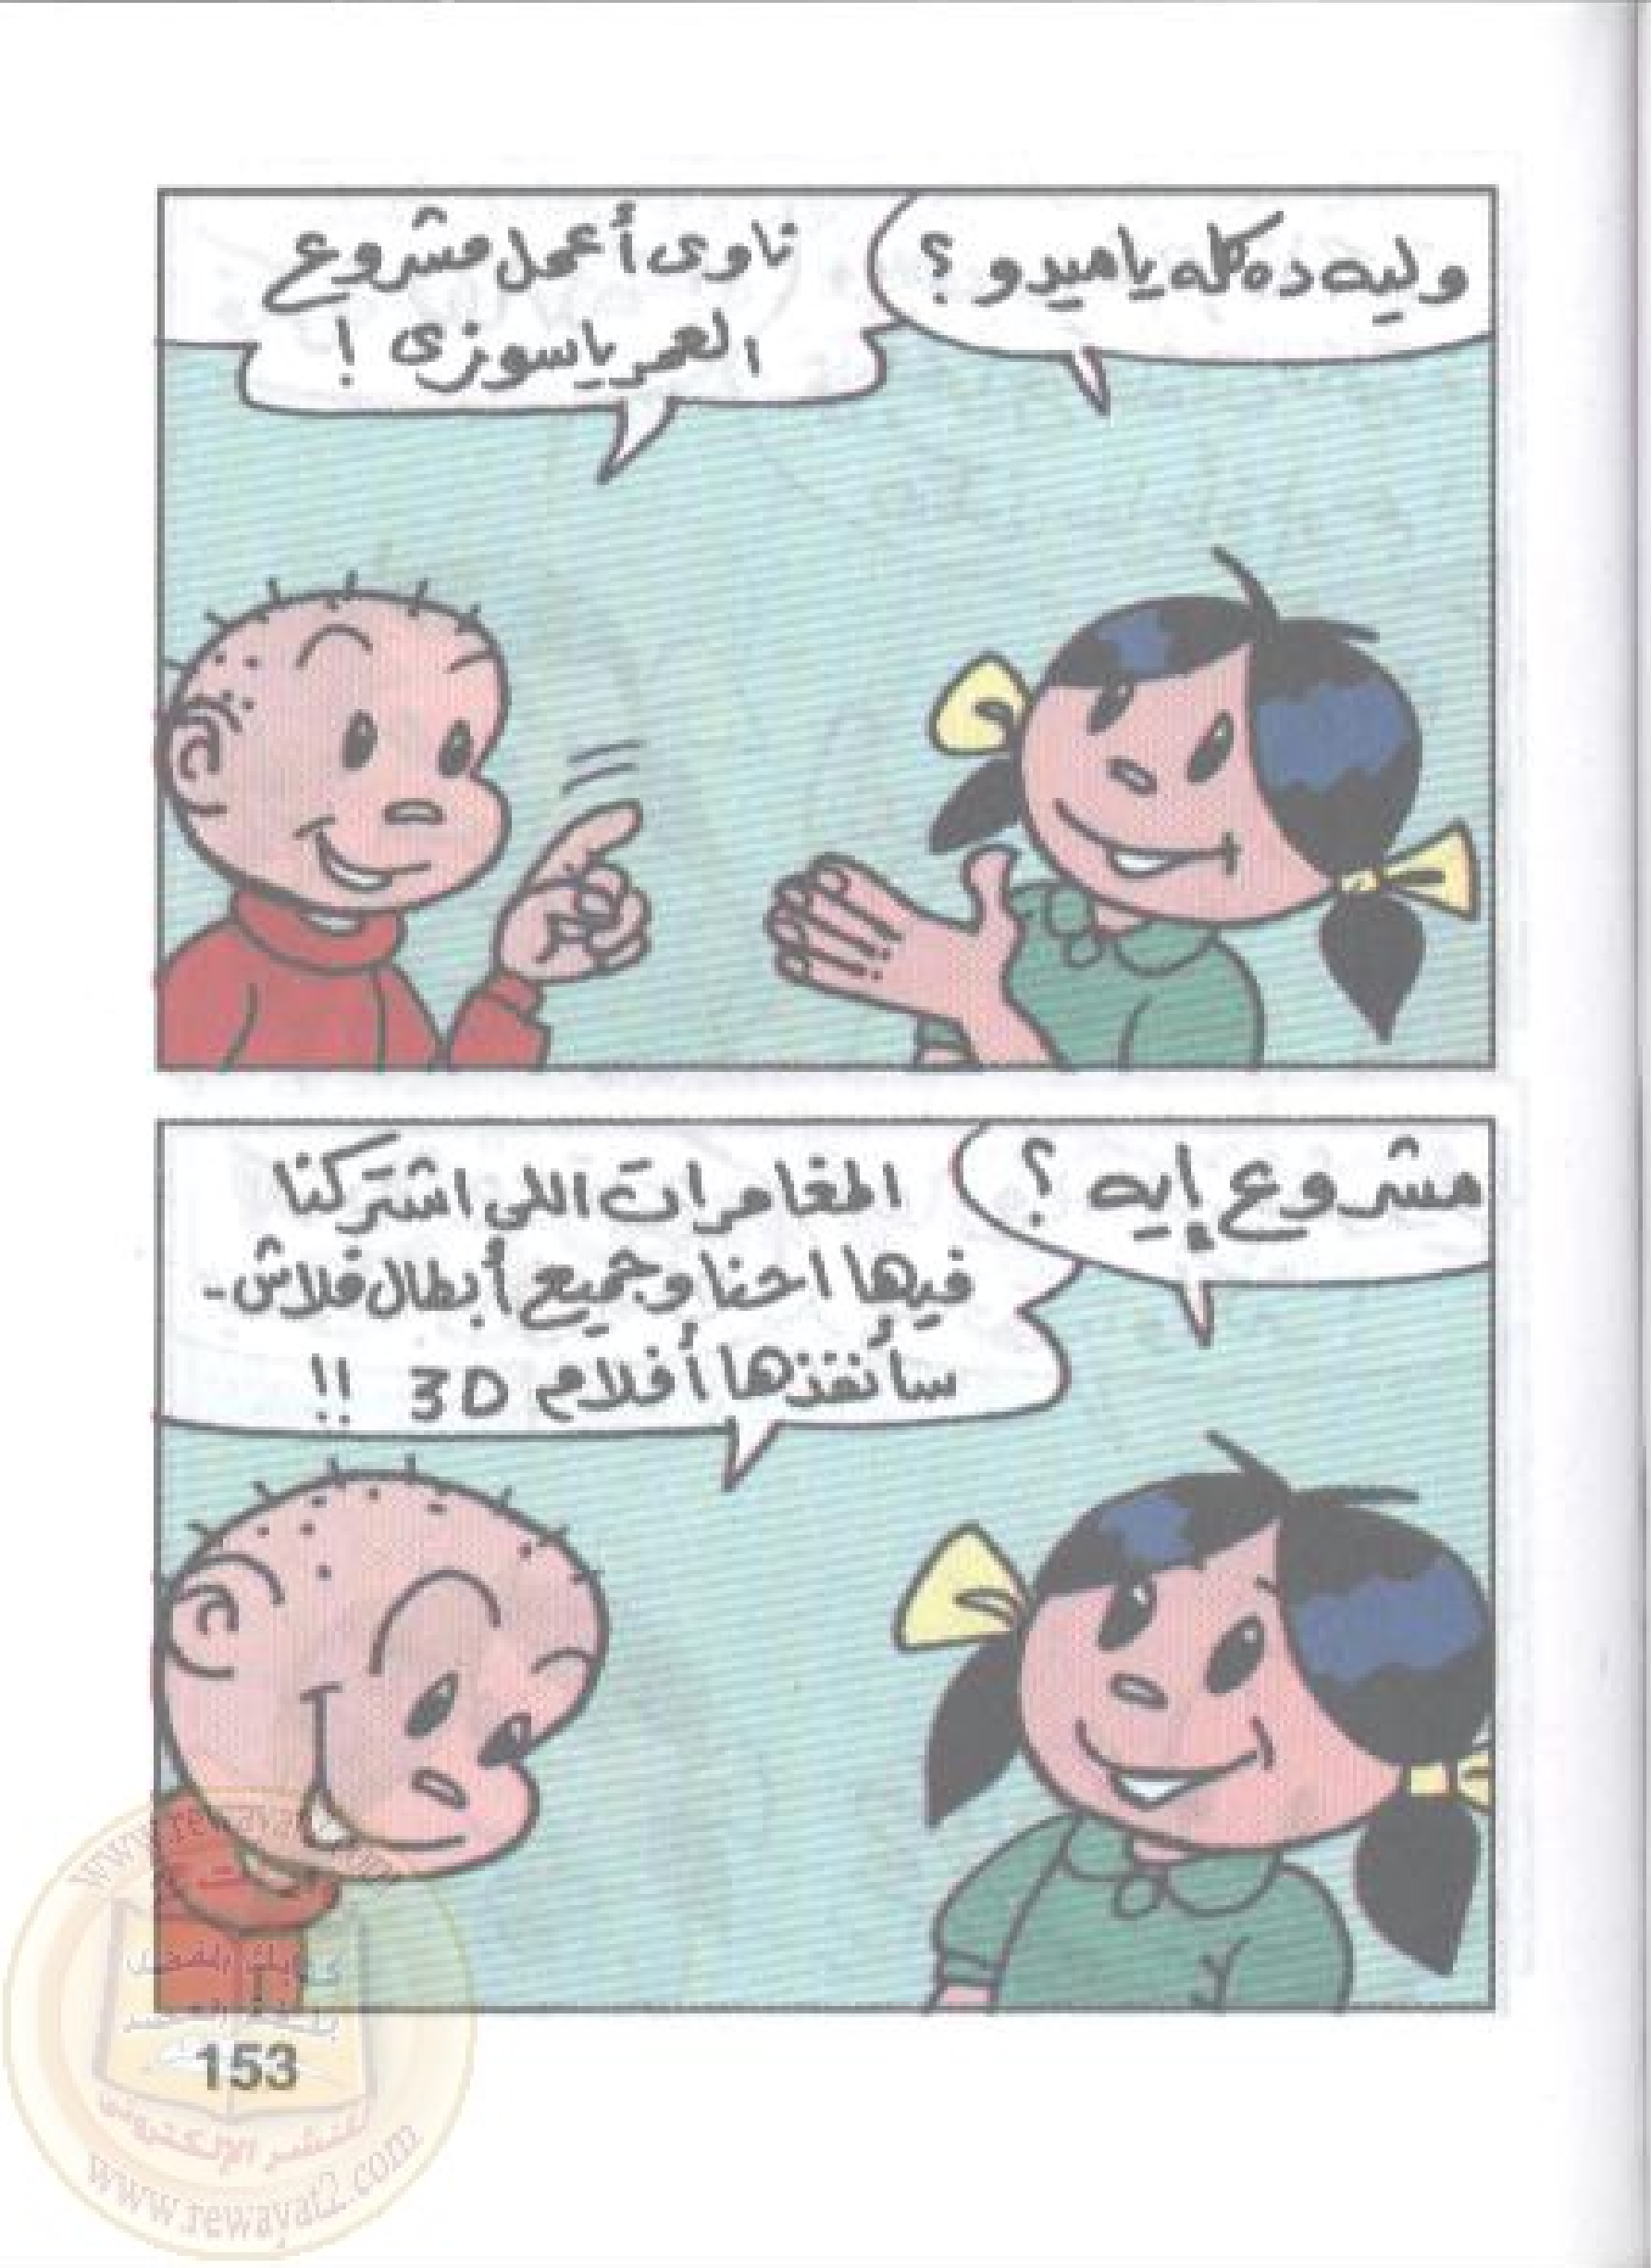 وليه ده كله يا ميدو ؟
ناوى أعمل مشروع
العمر يا سوزى !
مشروع إيه ؟
المغامرات اللى اشتركنا
فيها احنا وجميع أبطال فلاش -
سأنفذها أفلام 3D !!
153
للنشر الإلكترونى
www.rewayat2.com